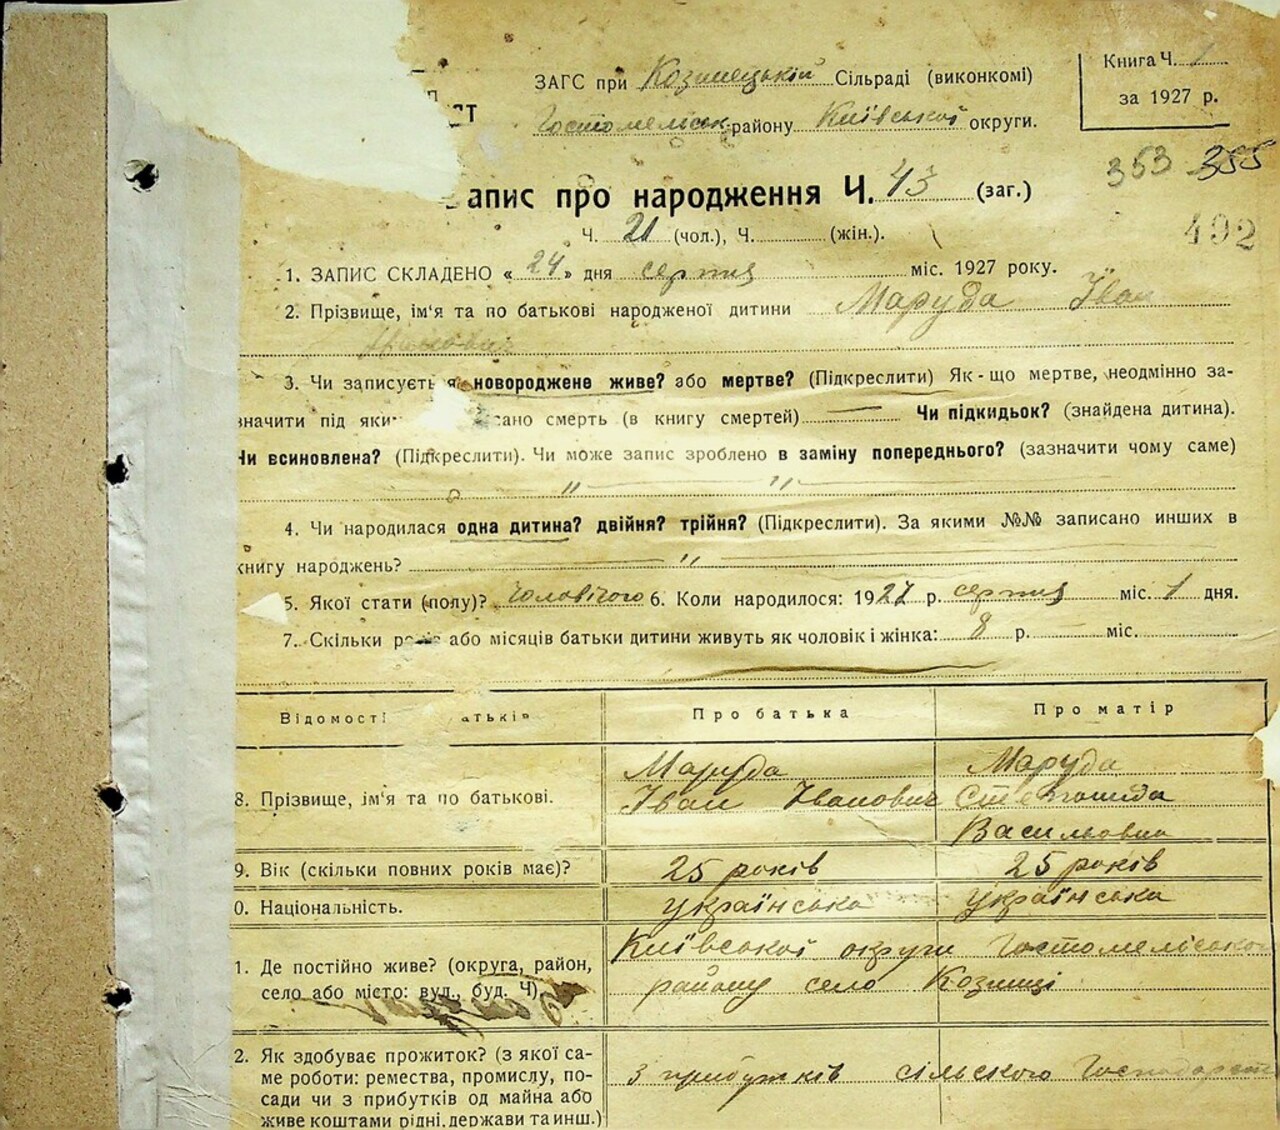 ЗАГС при Козинецькій Сільраді (виконкомі)
Книга Ч. 1
ст
Гостомельськ. району Київської округи.
за 1927 р.
353 355
апис про народження Ч. 43 (заг.)
Ч. 21 (чол.), Ч. (жін.).
492
1. ЗАПИС СКЛАДЕНО « 24 » дня серпня міс. 1927 року.
2. Прізвище, ім'я та по батькові народженої дитини Маруда Іван
Іванович
3. Чи записується новороджене живе? або мертве? (Підкреслити) Як-що мертве, неодмінно за-
значити під яким сано смерть (в книгу смертей) — Чи підкидьок? (знайдена дитина).
Чи всиновлена? (Підкреслити). Чи може запис зроблено в заміну попереднього? (зазначити чому саме)
" "
4. Чи народилася одна дитина? двійня? трійня? (Підкреслити). За якими №№ записано инших в
книгу народжень? "
5. Якої стати (полу)? Чоловічого 6. Коли народилося: 1927 р. серпня міс. 1 дня.
7. Скільки років або місяців батьки дитини живуть як чоловік і жінка: 8 р. міс.
Відомості батьків Про батька Про матір
8. Прізвище, ім'я та по батькові. Маруда Іван Іванович Маруда Васильовна
9. Вік (скільки повних років має)? 25 років 25 років
0. Національність. українська українська
1. Де постійно живе? (округа, район, Київської округи Гостомельського
село або місто: вул., буд. Ч). району село Козинці
2. Як здобуває прожиток? (з якої са- З прибутків сільського Господарст
ме роботи: ремества, промислу, по-
сади чи з прибутків од майна або
живе коштами рідні, держави та инш.)